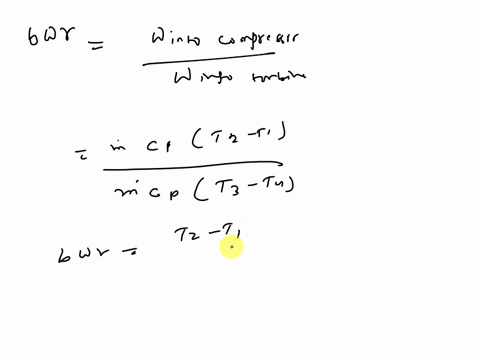 bwr = W into compressor
W into turbine
= ṁ cp (T2 - T1)
ṁ cp (T3 - T4)
bwr = T2 - T1